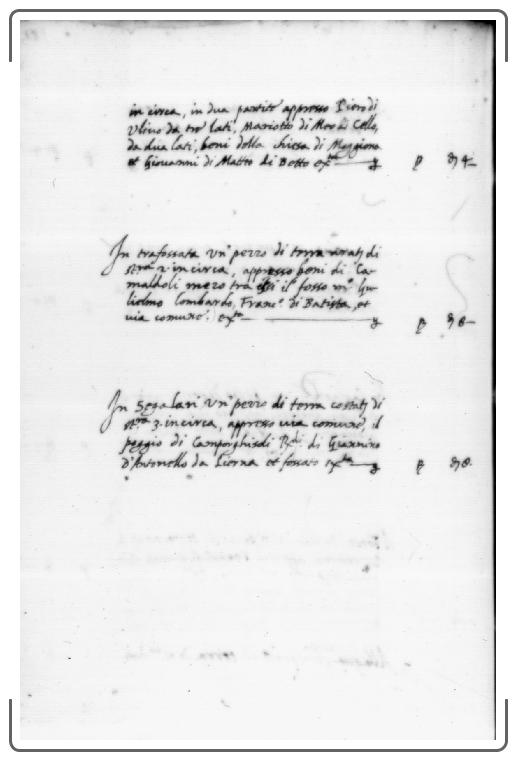 in circa, in dua partite appresso Piero di
Ulivo da tre lati, Mariotto di Meo di Cello,
da dua lati, beni della chiesa di Moggiona
et Giovanni di Matteo di Betto ex.ta
In trafossata un' pezzo di terra di
stra 2. in circa, appresso beni di Ca-
maldoli mezo tra essi il fosso m.r Gu-
lielmo Lombardo, Franc.o di Batista, et
via comune. ex.ta
In Segalari un' pezzo di terra di
st.ra 3. in circa, appresso via comune, il
poggio di di Giannino
d'Antoniello da Lierna et fossato ex.ta